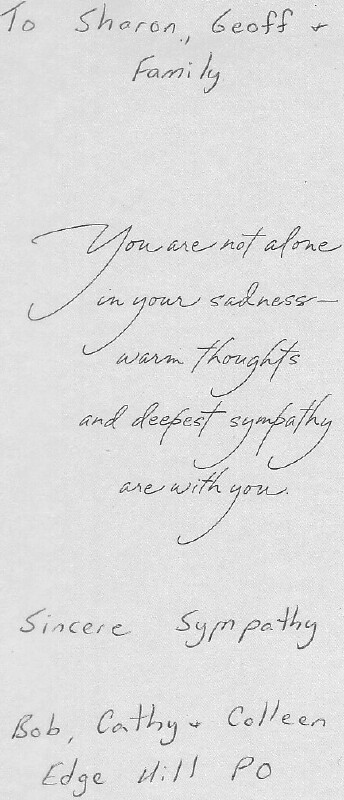 To Sharon, Geoff +
Family
You are not alone
in your sadness—
warm thoughts
and deepest sympathy
are with you.
Sincere Sympathy
Bob, Cathy + Colleen
Edge Hill PO